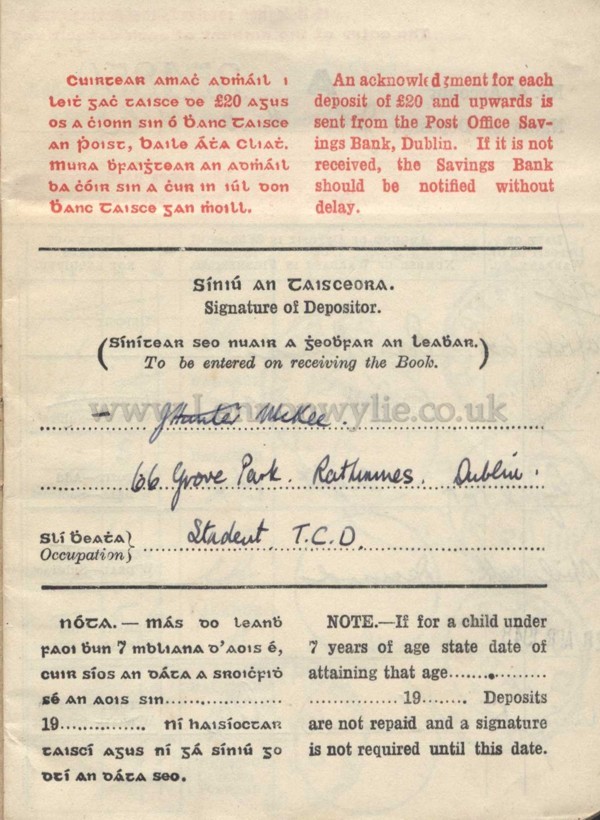 Cuirtear amaċ adṁáil i
leiṫ gaċ taisce de £20 agus
os a ċionn sin ó Ḃanc Taisce
an Ṗoist, Baile Áṫa Cliaṫ.
Mura ḃfaiġtear an adṁáil
ba ċóir sin a ċur in iúl don
Ḃanc Taisce gan ṁoill.
An acknowledgment for each
deposit of £20 and upwards is
sent from the Post Office Sav-
ings Bank, Dublin. If it is not
received, the Savings Bank
should be notified without
delay.
Síniú an Taisceora.
Signature of Depositor.
(Sínítear seo nuair a ġeoḃfar an leaḃar.)
To be entered on receiving the Book.
www.lennonwylie.co.uk
– J Hunter McKee.
66 Grove Park. Rathmines. Dublin.
Slí Ḃeaṫa
Occupation
Student T.C.D.
NÓTA.—Más do leanḃ
faoi ḃun 7 mbliana d'aois é,
cuir síos an dáta a sroiċfiḋ
sé an aois sin..................
19............... Ní haisíoctar
taiscí agus ní gá síniú go
dtí an dáta seo.
NOTE.—If for a child under
7 years of age state date of
attaining that age...............
.................. 19........ Deposits
are not repaid and a signature
is not required until this date.